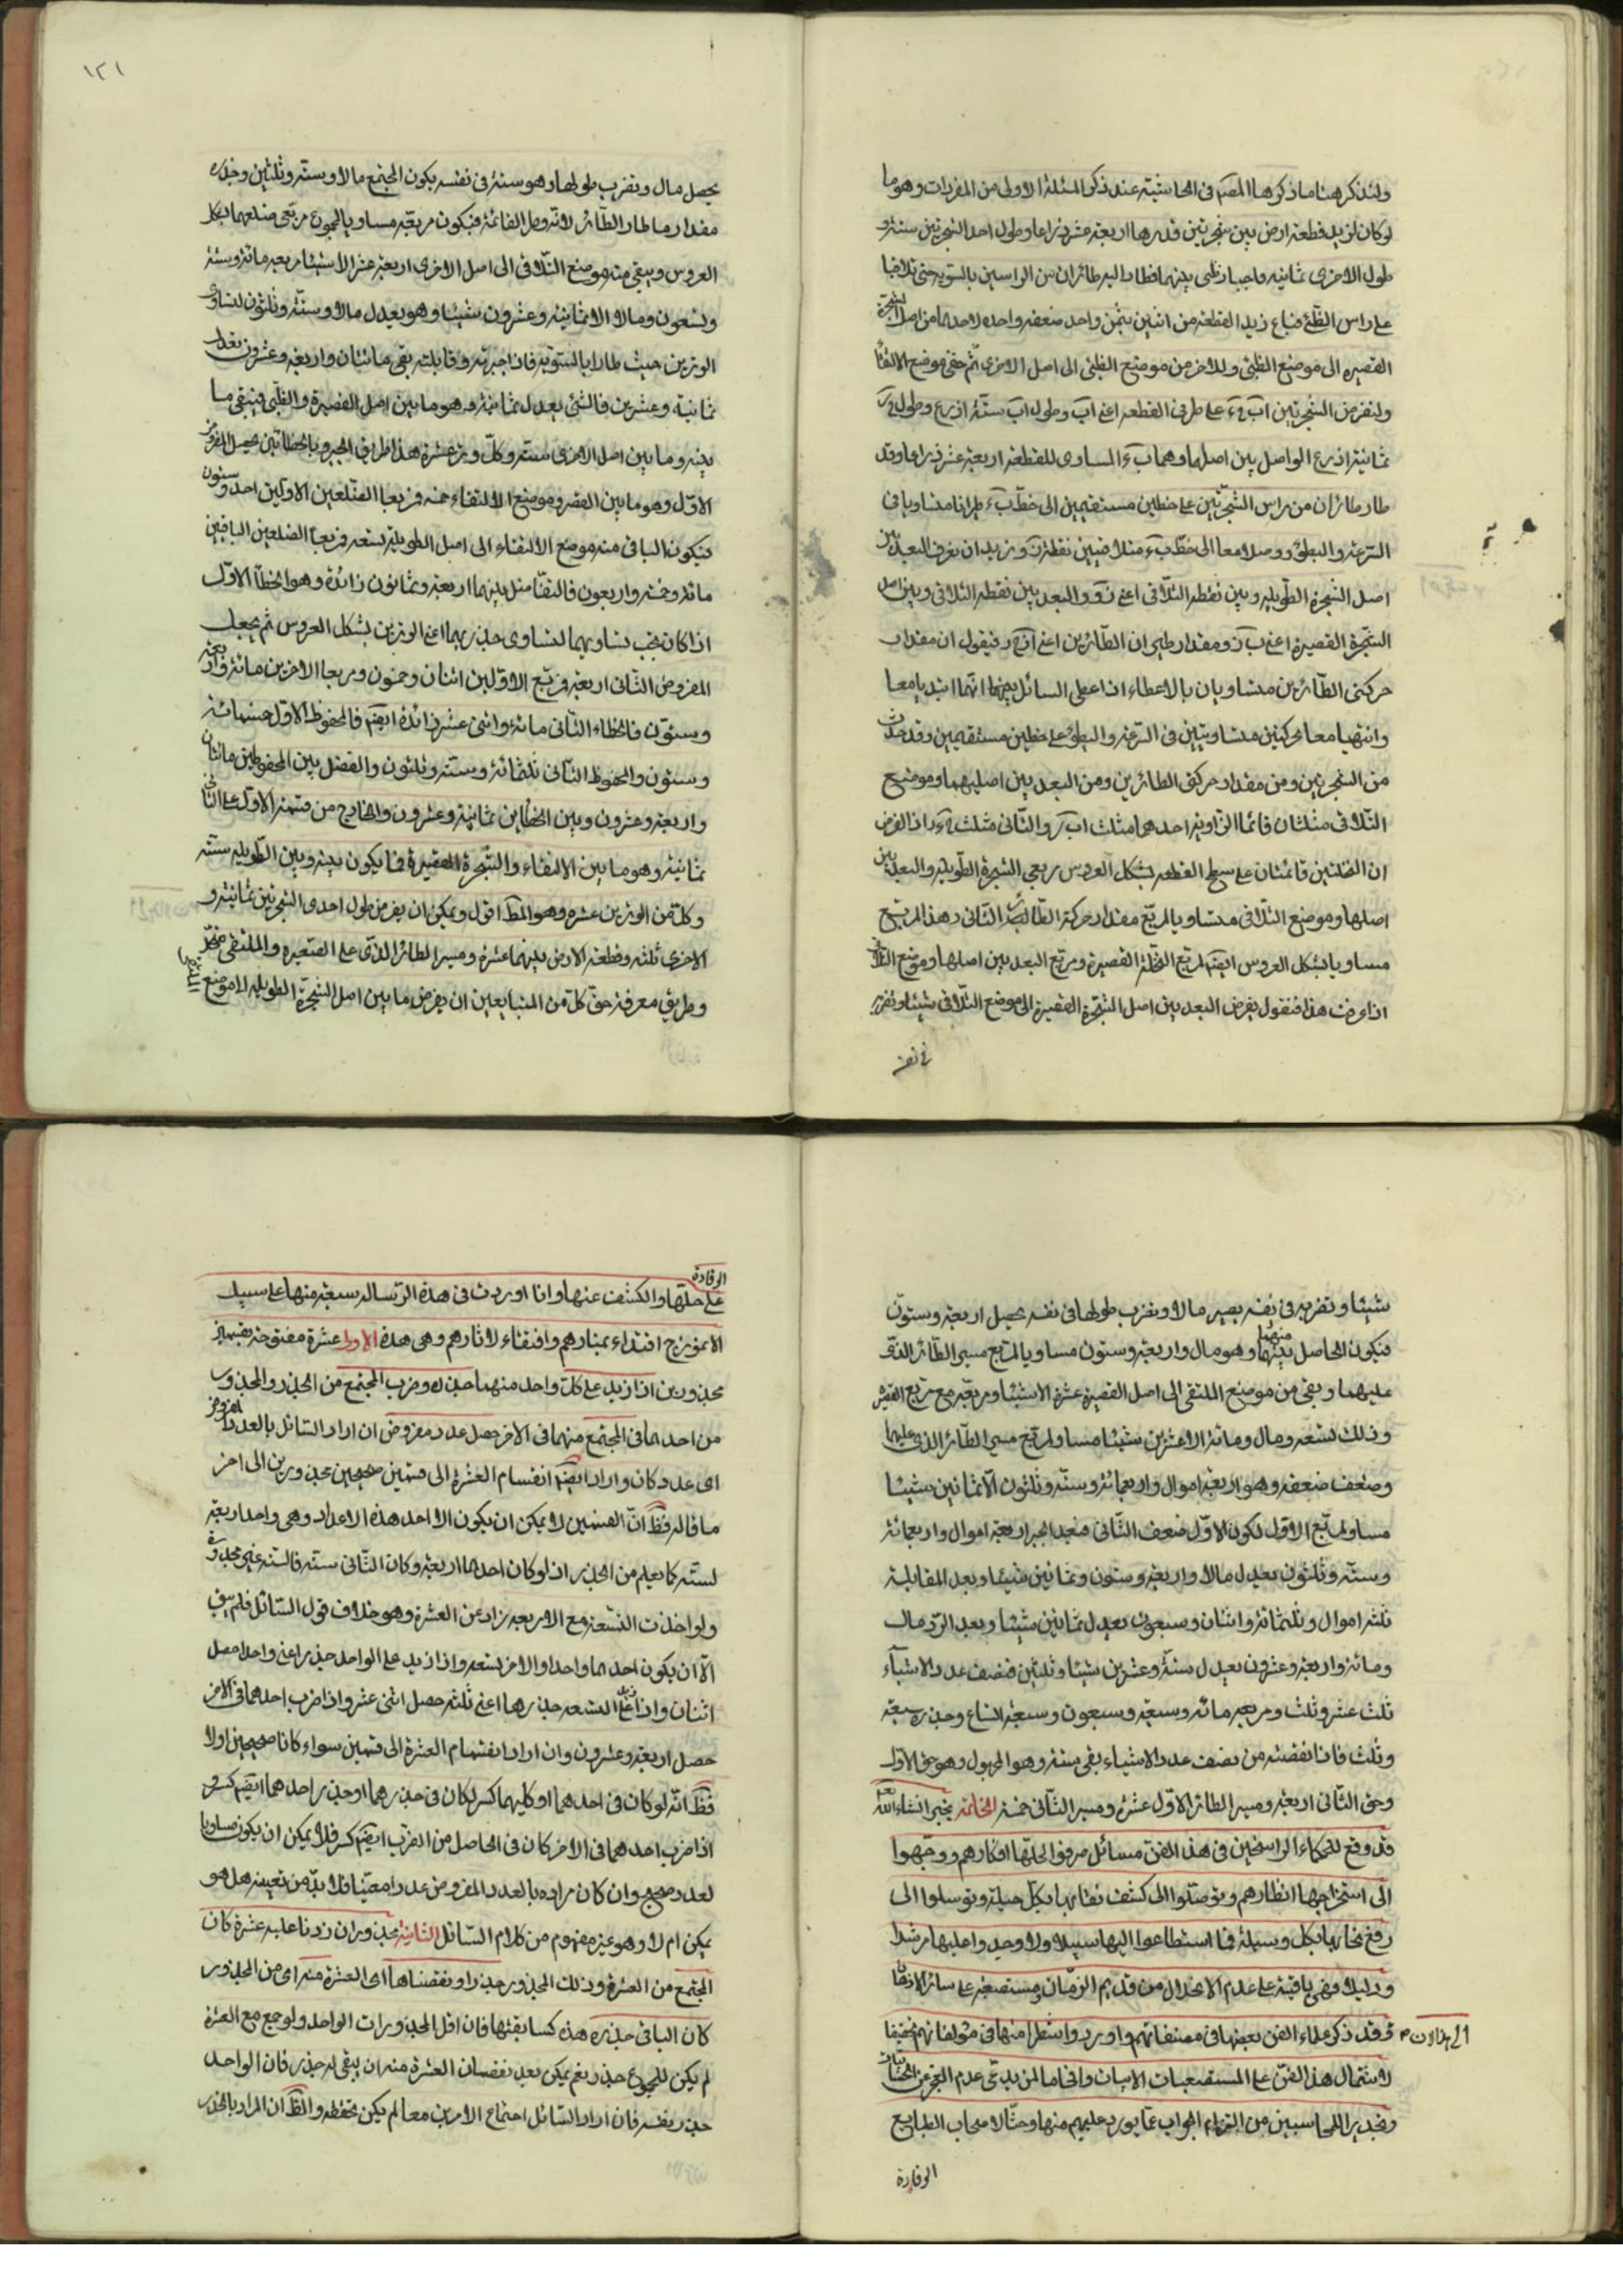 ولنذكر هنا ما ذكرها المصنف في الحاشية عند ذكر المسئلة الاولى من المفردات وهو ما
لو كان لزيد قطعة ارض بين شجرتين قدرها اربعة عشر ذراعا وطول احد الشجرتين ستة و
طول الاخرى ثمانية فاجتاز ظبي بينهما فطار اليه طائران من الراسين بالسوية حتى تلاقيا
على راس الظبي فباع زيد القطعة من اثنين بثمن واحد صفقة واحدة لاحدهما من اصل الشجرة
القصيرة الى موضع الظبي وللاخر من موضع الظبي الى اصل الاخرى ثم خفي موضع الالتقاء
ولنفرض الشجرتين على طرفي القطعة اعني وطول اب ستة اذرع وطول
ثمانية اذرع الواصل بين اصلهما وهما المساوي للقطعة اربعة عشر ذراعا وقد
طار طائران من راس الشجرتين على خطين مستقيمين الى خط طيرانا متساويا في
السرعة والبطؤ ووصلا معا الى خط متلاقيين نقطة ونريد ان نعرف البعد بين
اصل الشجرة الطويلة وبين نقطة التلاقي اعني والبعد بين نقطة التلاقي وبين اصل
الشجرة القصيرة اعني ومقدار طيران الطائرين اعني فنقول ان مقدار
حركتي الطائرين متساويان بالاعطاء اذا عطى السائل بينهما انهما ابتديا معا
وانتهيا معا بحركتين متساويتين في السرعة والبطؤ على خطين مستقيمين وقد حدث
من الشجرتين ومن مقدار حركتي الطائرين ومن البعد بين اصليهما وموضع
التلاقي مثلثان قائما الزاوية احدهما مثلث والثاني مثلث اذ الفرض
ان قائمتان على سطح القطعة بشكل العروس ربعي الشجرة الطويلة والبعد بين
اصلها وموضع التلاقي متساو بالمربع مقدار حركة الطائر الثاني وهذا المربع
مساو بالشكل العروس ايضا لمربع النخلة القصيرة ومربع البعد بين اصلها وموضع التلاقي
اذا عرفت هذا فنقول يفرض البعد بين اصل الشجرة القصيرة الى موضع التلاقي شيئا ونضربه
في نفسه
١٢١
يحصل مال ونضرب طولها وهو ستة في نفسه يكون المجتمع مالا وستة وثلثين وجذره
مقدار ما طار الطائر لانه وتر القائمة فيكون مربعه مساويا لمجموع مربعي ضلعيهما بشكل
العروس ويبقى من موضع التلاقي الى اصل الاخرى اربعة عشر الا شيئا مربعه مائة وستة
وتسعون ومالا الا ثمانية وعشرون شيئا وهو يعدل مالا وستة وثلثون لتساوي
الوترين حيث طارا بالسوية فاذا جبرته وقابلته بقي مائتان واربعة وعشرون يعدل
ثمانية وعشرين فالشئ يعدل ثمانية وهو ما بين اصل القصيرة والظبي فيبقى ما
بينه وما بين اصل الاخرى ستة وكل وتر عشرة هذا طريق الجبر وبالخطائين يحصل المفروض
الاول وهو ما بين القصيرة وموضع الالتقاء خمسة فربعا الضلعين الاولين احد وستون
فيكون الباقي منه موضع الالتقاء الى اصل الطويلة تسعة فربعا الضلعين الباقيين
مائة وخمسة واربعون فالتفاضل بينهما اربعة وثمانون زائدة وهو الخطأ الاول
اذا كان يجب تساويهما لتساوي جذريهما اعني الوترين بشكل العروس ثم يجعل
المفروض الثاني اربعة فربع الاولين اثنان وخمسون وربعا الاخرين مائة واربعة
وستون فالخطاء الثاني مائة واثنى عشر زائدة ايضا فالمحفوظ الاول خمسمائة
وستون والمحفوظ الثاني ثلثمائة وستة وثلثون والفضل بين المحفوظين مائتان
واربعة وعشرون وبين الخطاين ثمانية وعشرون والخارج من قسمة الاول على الثاني
ثمانية وهو ما بين الالتقاء والشجرة القصيرة فما يكون بينه وبين الطويلة ستة
وكل من الوترين عشرة وهو المط اقول ويمكن ان يفرض طول احدى الشجرتين ثمانية و
الاخرى ثلثة وقطعة الارض بينهما عشرة ومسير الطائر الذي على القصيرة والملتقى
وطريق معرفة حق كل من المتبايعين ان يفرض ما بين اصل الشجرة الطويلة الى موضع
شيئا ونضربه في نفسه يصير مالا ونضرب طولها في نفسه يحصل اربعة وستون
فيكون الحاصل منهما وهو مال واربعة وستون مساويا لمربع مسير الطائر الذي
عليها ويبقى من موضع الملتقى الى اصل القصيرة عشرة الا شيئا ومربعه مع مربع القصيرة
وذلك تسعة ومال ومائة الا عشرين شيئا مساو لمربع مسير الطائر الذي عليها
وضعف ضعفه وهو اربعة اموال واربعمائة وستة وثلثون الا ثمانين شيئا
مساو لمربع الاول لكون الاول ضعف الثاني فبعد الجبر اربعة اموال واربعمائة
وستة وثلثون يعدل مالا واربعة وستون وثمانين شيئا وبعد المقابلة
ثلثة اموال وثلثمائة واثنان وسبعون يعدل ثمانين شيئا وبعد الرد مال
ومائة واربعة وعشرون يعدل ستة وعشرين شيئا وثلثين فنصف عدد الاشياء
ثلث عشر وثلث ومربعه مائة وسبعة وسبعون وسبعة اتساع وجذره سبعة
وثلث فاذا نقصته من نصف عدد الاشياء بقي ستة وهو المجهول وهو حق الاول
وحق الثاني اربعة ومسير الطائر الاول عشرة ومسير الثاني خمسة الخاتمة
قد وقع للحكماء الراسخين في هذا الفن مسائل صرفوا لحلها افكارهم ووجهوا
الى استخراجها انظارهم وتوصلوا الى كشف نقابها بكل حيلة وتوسلوا الى
رفع حجابها بكل وسيلة فما استطاعوا اليها سبيلا ولا وجدوا عليها مرشدا
ودليلا فهي باقية على عدم الانحلال من قديم الزمان ومستصعبة على سائر الاذهان
الى هذا الان فقد ذكر علماء الفن بعضها في مصنفاتهم واوردوا شطرا منها في مؤلفاتهم تحقيقا
لاشتمال هذا الفن على المستصعبات الابيات وافحاما لمن يدعي عدم العجز عن الحسابيات
وتحذيرا للحاسبين من التزام الجواب عما يورد عليهم منها وحثا لاصحاب الطبايع
الوقادة
الوقادة
على حلها والكشف عنها وانا اوردت في هذه الرسالة سبعة منها على سبيل
الانموذج اقتداء بمنارهم واقتفاء لاثارهم وهي هذه الاولى عشرة مقسومة بقسمين
مجذورين اذا زيد على كل واحد منهما جذره وضرب المجتمع من الجذر والمجذور
من احدهما في المجتمع منهما في الاخر حصل عدد مفروض ان اراد السائل بالعدد المفروض
اى عدد كان واراد ايضا انقسام العشرة الى قسمين صحيحين مجذورين الى اخر
ما قاله فظ ان القسمين لا يمكن ان يكون الا احد هذه الاعداد وهي واحد اربعة
لستة كما يعلم من الجذر اذ لو كان احدهما اربعة وكان الثاني ستة فالستة غير مجذورة
ولو اخذت التسعة مع الاربعة زاد عن العشرة وهو خلاف قول السائل فلم يبق
الا ان يكون احدهما واحدا والاخر تسعة واذا زيد على الواحد جذره اعني واحدا حصل
اثنان واذا زيد على التسعة جذرها اعني ثلثة حصل اثنى عشر واذا ضرب احدهما في الاخر
حصل اربعة وعشرون وان اراد انقسام العشرة الى قسمين سواء كانا صحيحين اولا
فظ انه لو كان في احدهما او كليهما كسر لكان في جذرهما او جذر احدهما ايضا كسر و
اذا ضرب احدهما في الاخر كان في الحاصل من الضرب ايضا كسر فلا يمكن ان يكون مساويا
لعدد صحيح وان كان مراده بالعدد المفروض عددا معينا فلا بد من تعيينه هل هو
يمكن ام لا وهو غير مفهوم من كلام السائل الثانية مجذور ان زدنا عليه عشرة كان
المجتمع من العشرة وذلك المجذور جذرا ونقصناها اى العشرة منه اى من المجذور
كان الباقي جذره هذه كسابقتها فان اقل المجذورات الواحد ولو جمع مع العشرة
لم يكن للمجموع جذر نعم يمكن بعد نقصان العشرة منه ان يبقى له جذر فان الواحد
جذر نفسه فان اراد السائل اجتماع الامرين معا لم يكن والظ ان المراد بالجذر